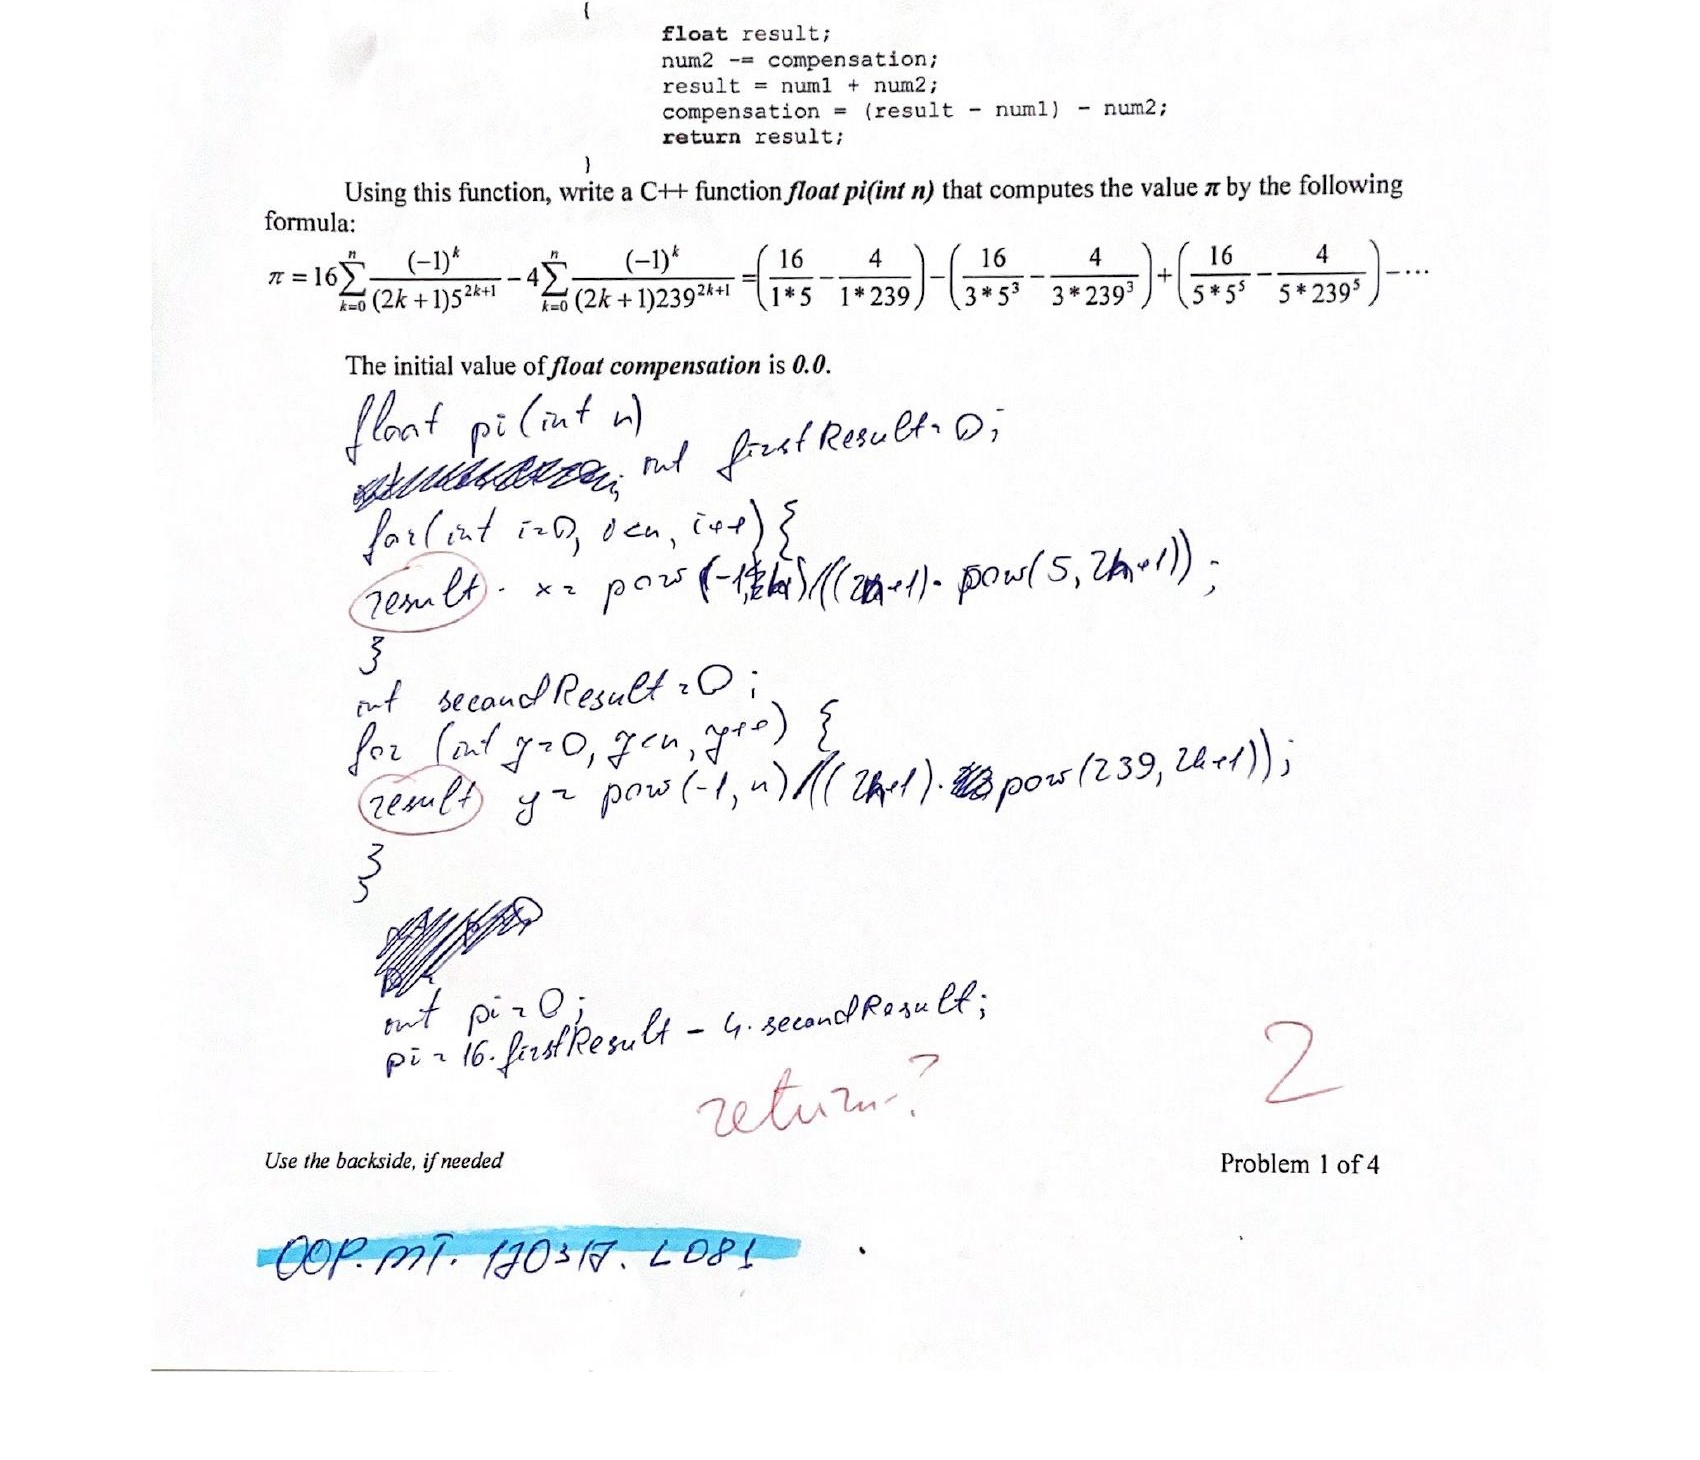 {
float result;
num2 -= compensation;
result = num1 + num2;
compensation = (result - num1) - num2;
return result;
}
Using this function, write a C++ function float pi(int n) that computes the value π by the following
formula:
π = 16∑_{k=0}^{n} (-1)^k/((2k+1)5^{2k+1}) - 4∑_{k=0}^{n} (-1)^k/((2k+1)239^{2k+1}) = (16/(1*5) - 4/(1*239)) - (16/(3*5^3) - 4/(3*239^3)) + (16/(5*5^5) - 4/(5*239^5)) - ...
The initial value of float compensation is 0.0.
float pi(int n)
int firstResult=0;
for(int i=0, i<n, i++){
result x= pow(-1, )/((2 +1)· pow(5, 2 +1));
}
int secondResult=0;
for (int y=0, y<n, y++) {
result y= pow(-1, n)/((2 +1)· pow(239, 2 +1));
}
}
int pi=0;
pi= 16·firstResult - 4·secondResult;
return?
2
Use the backside, if needed
Problem 1 of 4
OOP.MT. 170317. L081